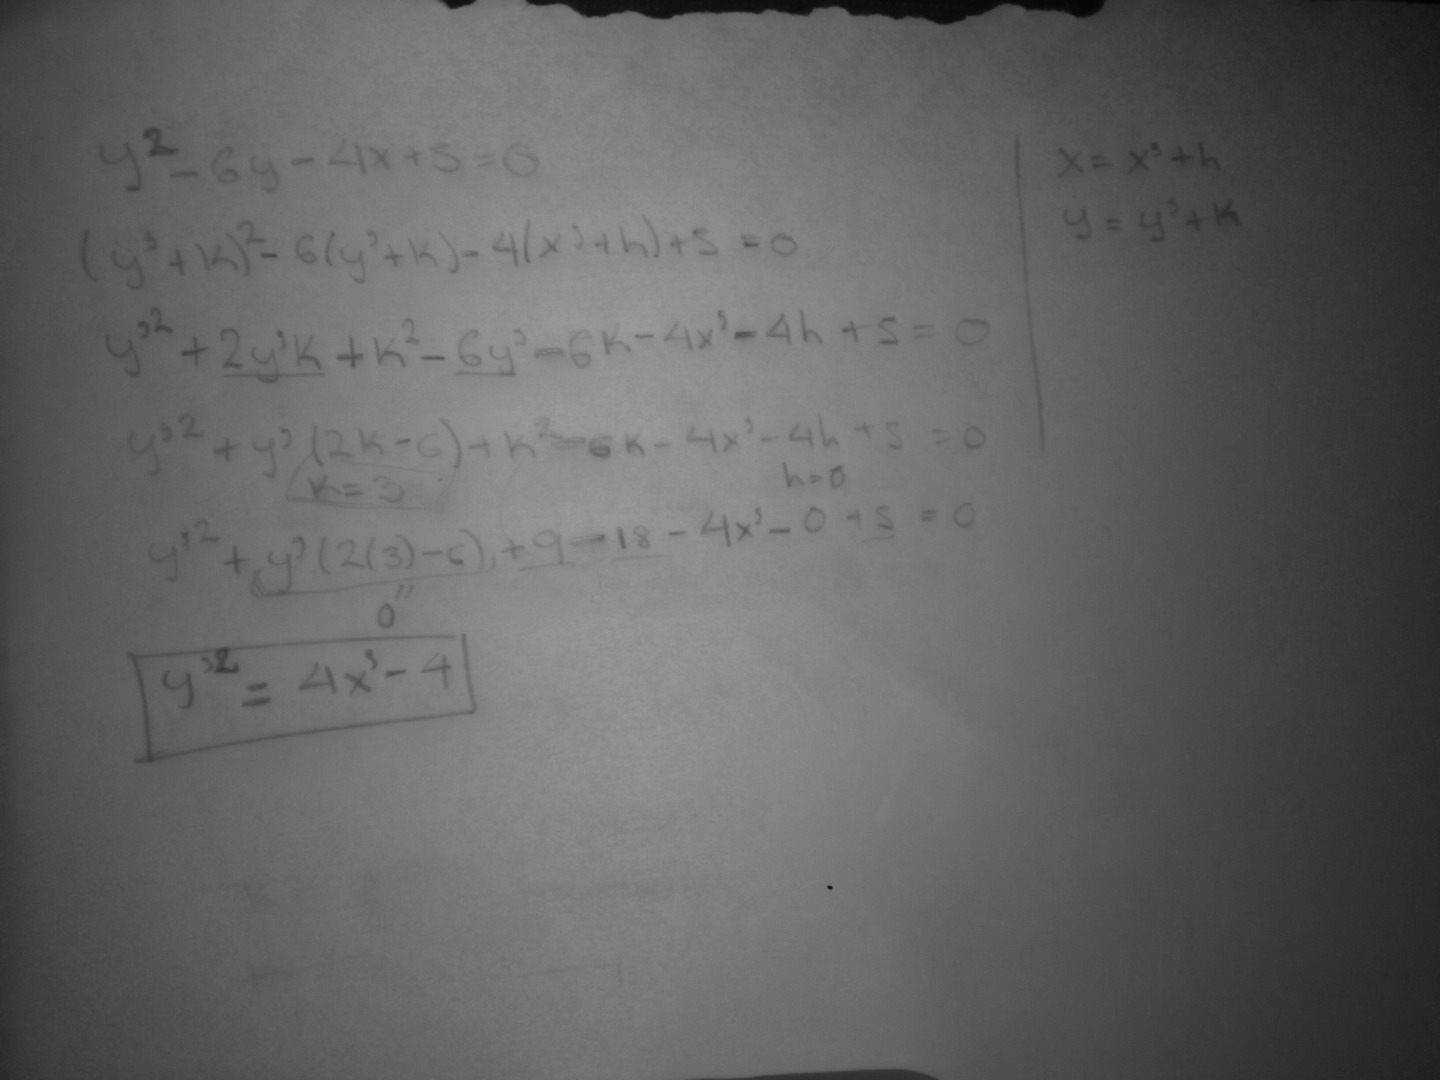 y² - 6y - 4x + 5 = 0
(y' + k)² - 6(y' + k) - 4(x' + h) + 5 = 0
y'² + 2y'k + k² - 6y' - 6k - 4x' - 4h + 5 = 0
y'² + y'(2k - 6) + k² - 6k - 4x' - 4h + 5 = 0
k = 3
h = 0
y'² + y'(2(3) - 6) + 9 - 18 - 4x' - 0 + 5 = 0
0"
y'² = 4x' - 4
x = x' + h
y = y' + k